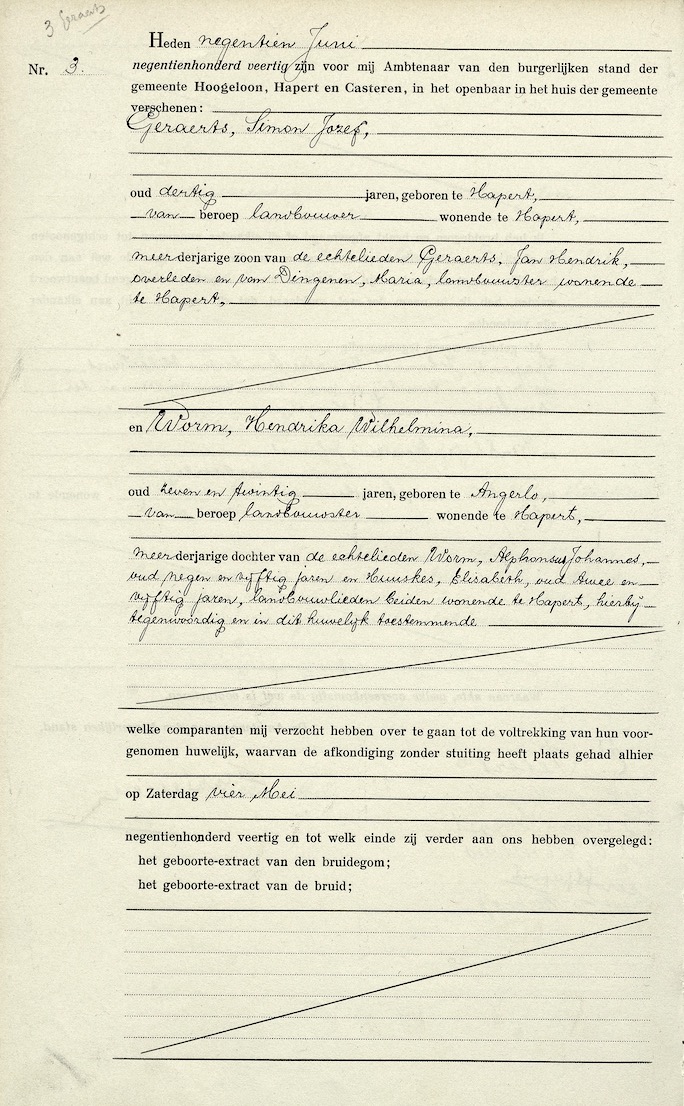 3 Geraerts
Heden negentien Juni
Nr. 3.
negentienhonderd veertig zijn voor mij Ambtenaar van den burgerlijken stand der
gemeente Hoogeloon, Hapert en Casteren, in het openbaar in het huis der gemeente
verschenen:
Geraerts, Simon Jozef,
oud dertig jaren, geboren te Hapert,
van beroep landbouwer wonende te Hapert,
meerderjarige zoon van de echtelieden Geraerts, Jan Hendrik,
overleden en van Dingenen, Maria, landbouwster wonende
te Hapert,
en Worm, Hendrika Wilhelmina,
oud zeven en twintig jaren, geboren te Angerlo,
van beroep landbouwster wonende te Hapert,
meerderjarige dochter van de echtelieden Worm, Alphonsus Johannes,
oud negen en vijftig jaren en Huiskes, Elisabeth, oud twee en
vijftig jaren, landbouwlieden beiden wonende te Hapert, hierbij
tegenwoordig en in dit huwelijk toestemmende
welke comparanten mij verzocht hebben over te gaan tot de voltrekking van hun voor-
genomen huwelijk, waarvan de afkondiging zonder stuiting heeft plaats gehad alhier
op Zaterdag vier Mei
negentienhonderd veertig en tot welk einde zij verder aan ons hebben overgelegd:
het geboorte-extract van den bruidegom;
het geboorte-extract van de bruid;